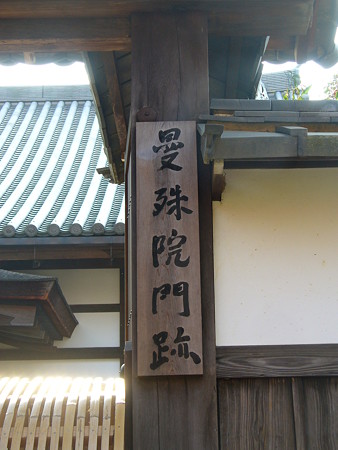 曼殊院門跡